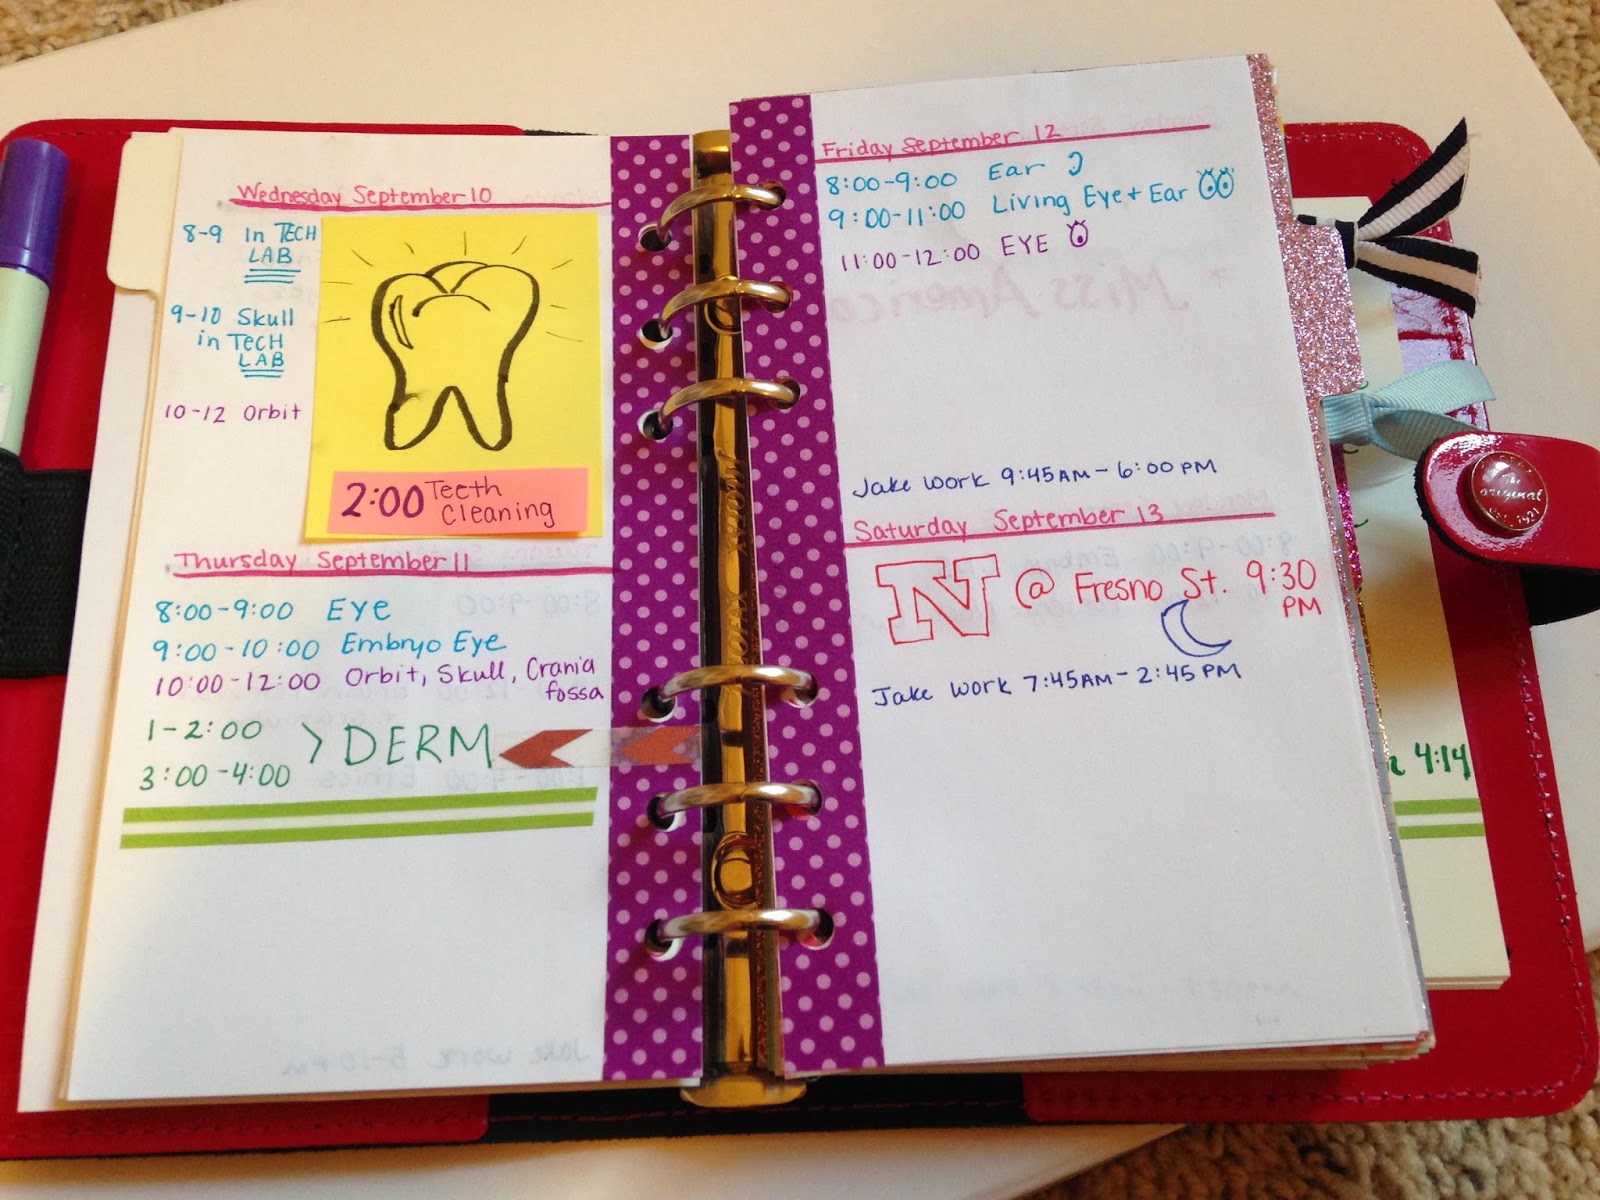 Wednesday September 10
8-9 In TECH
LAB
9-10 Skull
in TECH
LAB
10-12 Orbit
2:00 Teeth
Cleaning
Thursday September 11
8:00-9:00 Eye
9:00-10:00 Embryo Eye
10:00-12:00 Orbit, Skull, Crania
fossa
1-2:00
3:00-4:00
> DERM
Friday September 12
8:00-9:00 Ear
9:00-11:00 Living Eye + Ear
11:00-12:00 EYE
Jake work 9:45AM-6:00PM
Saturday September 13
N @ Fresno St. 9:30
PM
Jake work 7:45AM-2:45PM
4:14
The
original